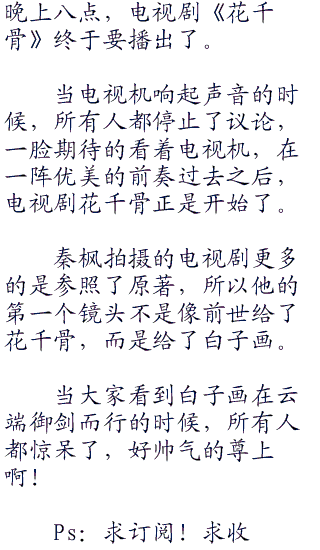 晚上八点，电视剧《花千
骨》终于要播出了。
当电视机响起声音的时
候，所有人都停止了议论，
一脸期待的看着电视机，在
一阵优美的前奏过去之后，
电视剧花千骨正是开始了。
秦枫拍摄的电视剧更多
的是参照了原著，所以他的
第一个镜头不是像前世给了
花千骨，而是给了白子画。
当大家看到白子画在云
端御剑而行的时候，所有人
都惊呆了，好帅气的尊上
啊！
Ps：求订阅！求收